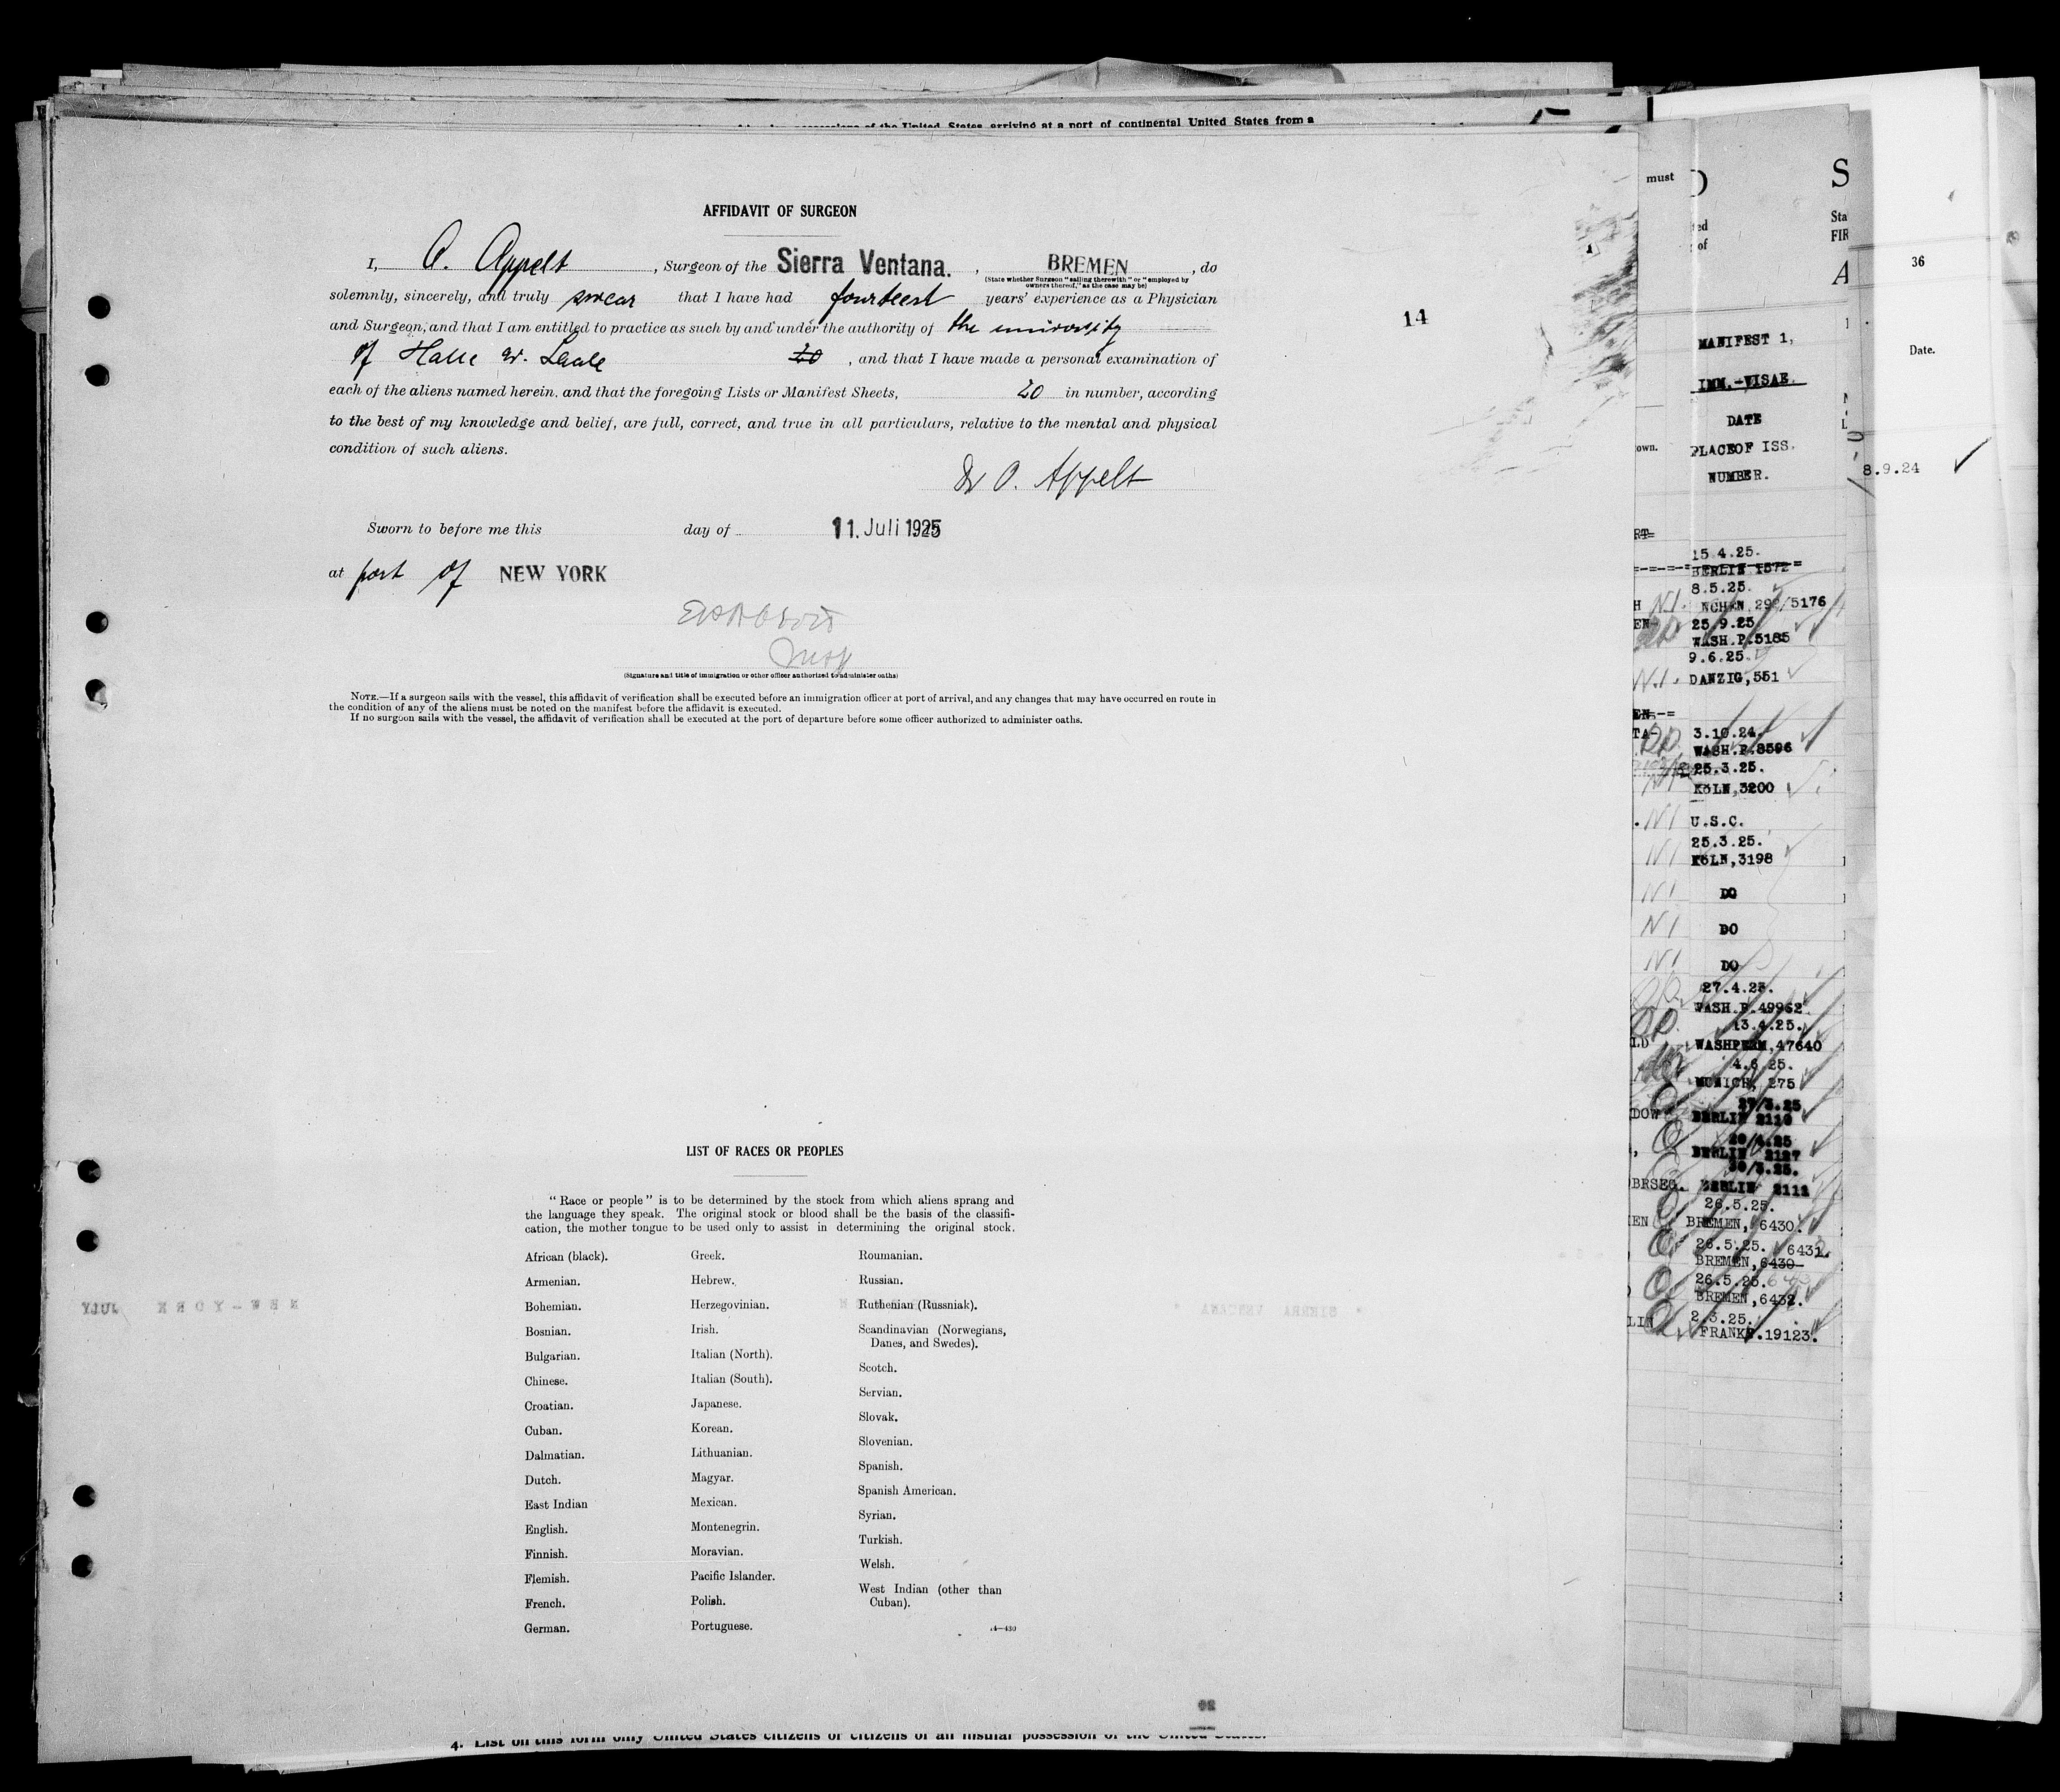 possessions of the United States arriving at a port of continental United States from a
AFFIDAVIT OF SURGEON
I, O. Appelt, Surgeon of the Sierra Ventana., BREMEN, do
(State whether Surgeon "sailing therewith" or "employed by
owners thereof," as the case may be)
solemnly, sincerely, and truly swear that I have had fourteen years' experience as a Physician
and Surgeon, and that I am entitled to practice as such by and under the authority of the university
of Halle 20, and that I have made a personal examination of
each of the aliens named herein. and that the foregoing Lists or Manifest Sheets, 20 in number, according
to the best of my knowledge and belief, are full, correct, and true in all particulars, relative to the mental and physical
condition of such aliens.
Dr O. Appelt
Sworn to before me this day of 11. Juli 1925
at port of NEW YORK
Insp
(Signature and title of immigration or other officer authorized to administer oaths)
NOTE.—If a surgeon sails with the vessel, this affidavit of verification shall be executed before an immigration officer at port of arrival, and any changes that may have occurred en route in
the condition of any of the aliens must be noted on the manifest before the affidavit is executed.
If no surgeon sails with the vessel, the affidavit of verification shall be executed at the port of departure before some officer authorized to administer oaths.
14
LIST OF RACES OR PEOPLES
"Race or people" is to be determined by the stock from which aliens sprang and
the language they speak. The original stock or blood shall be the basis of the classifi-
cation, the mother tongue to be used only to assist in determining the original stock.
African (black).
Armenian.
Bohemian.
Bosnian.
Bulgarian.
Chinese.
Croatian.
Cuban.
Dalmatian.
Dutch.
East Indian
English.
Finnish.
Flemish.
French.
German.
Greek.
Hebrew.
Herzegovinian.
Irish.
Italian (North).
Italian (South).
Japanese.
Korean.
Lithuanian.
Magyar.
Mexican.
Montenegrin.
Moravian.
Pacific Islander.
Polish.
Portuguese.
Roumanian.
Russian.
Ruthenian (Russniak).
Scandinavian (Norwegians,
Danes, and Swedes).
Scotch.
Servian.
Slovak.
Slovenian.
Spanish.
Spanish American.
Syrian.
Turkish.
Welsh.
West Indian (other than
Cuban).
4. List on this form only United States citizens or citizens of an insular possession of the United States.
must
own.
MANIFEST 1,
IMM.-VISAE.
DATE
PLACEOF ISS.
NUMBER.
15.4.25.
BERLIN 1572
8.5.25.
NCHEN, 292/5176
25.9.25
WASH.P.5185
9.6.25.
N.I. DANZIG,551
3.10.24.
WASH.P.8596
25.3.25.
KÖLN,3200
NI U.S.C.
25.3.25.
NI KÖLN,3198
NI DO
NI DO
NI DO
27.4.25.
WASH.P.49962
13.4.25.
WASHPERM,47640
4.6.25.
MUNICH, 275
27/3.25
DOW BERLIN 2110
20/4.25
BERLIN 2127
30/3.25.
BRSEG. BERLIN 2111
26.5.25.
BREMEN, 6430.
26.5.25. 6431
BREMEN,6430
26.5.25.
BREMEN,6432.
2.3.25.
FRANKF.19123.
S
Sta
FIR
A
36
Date.
8.9.24